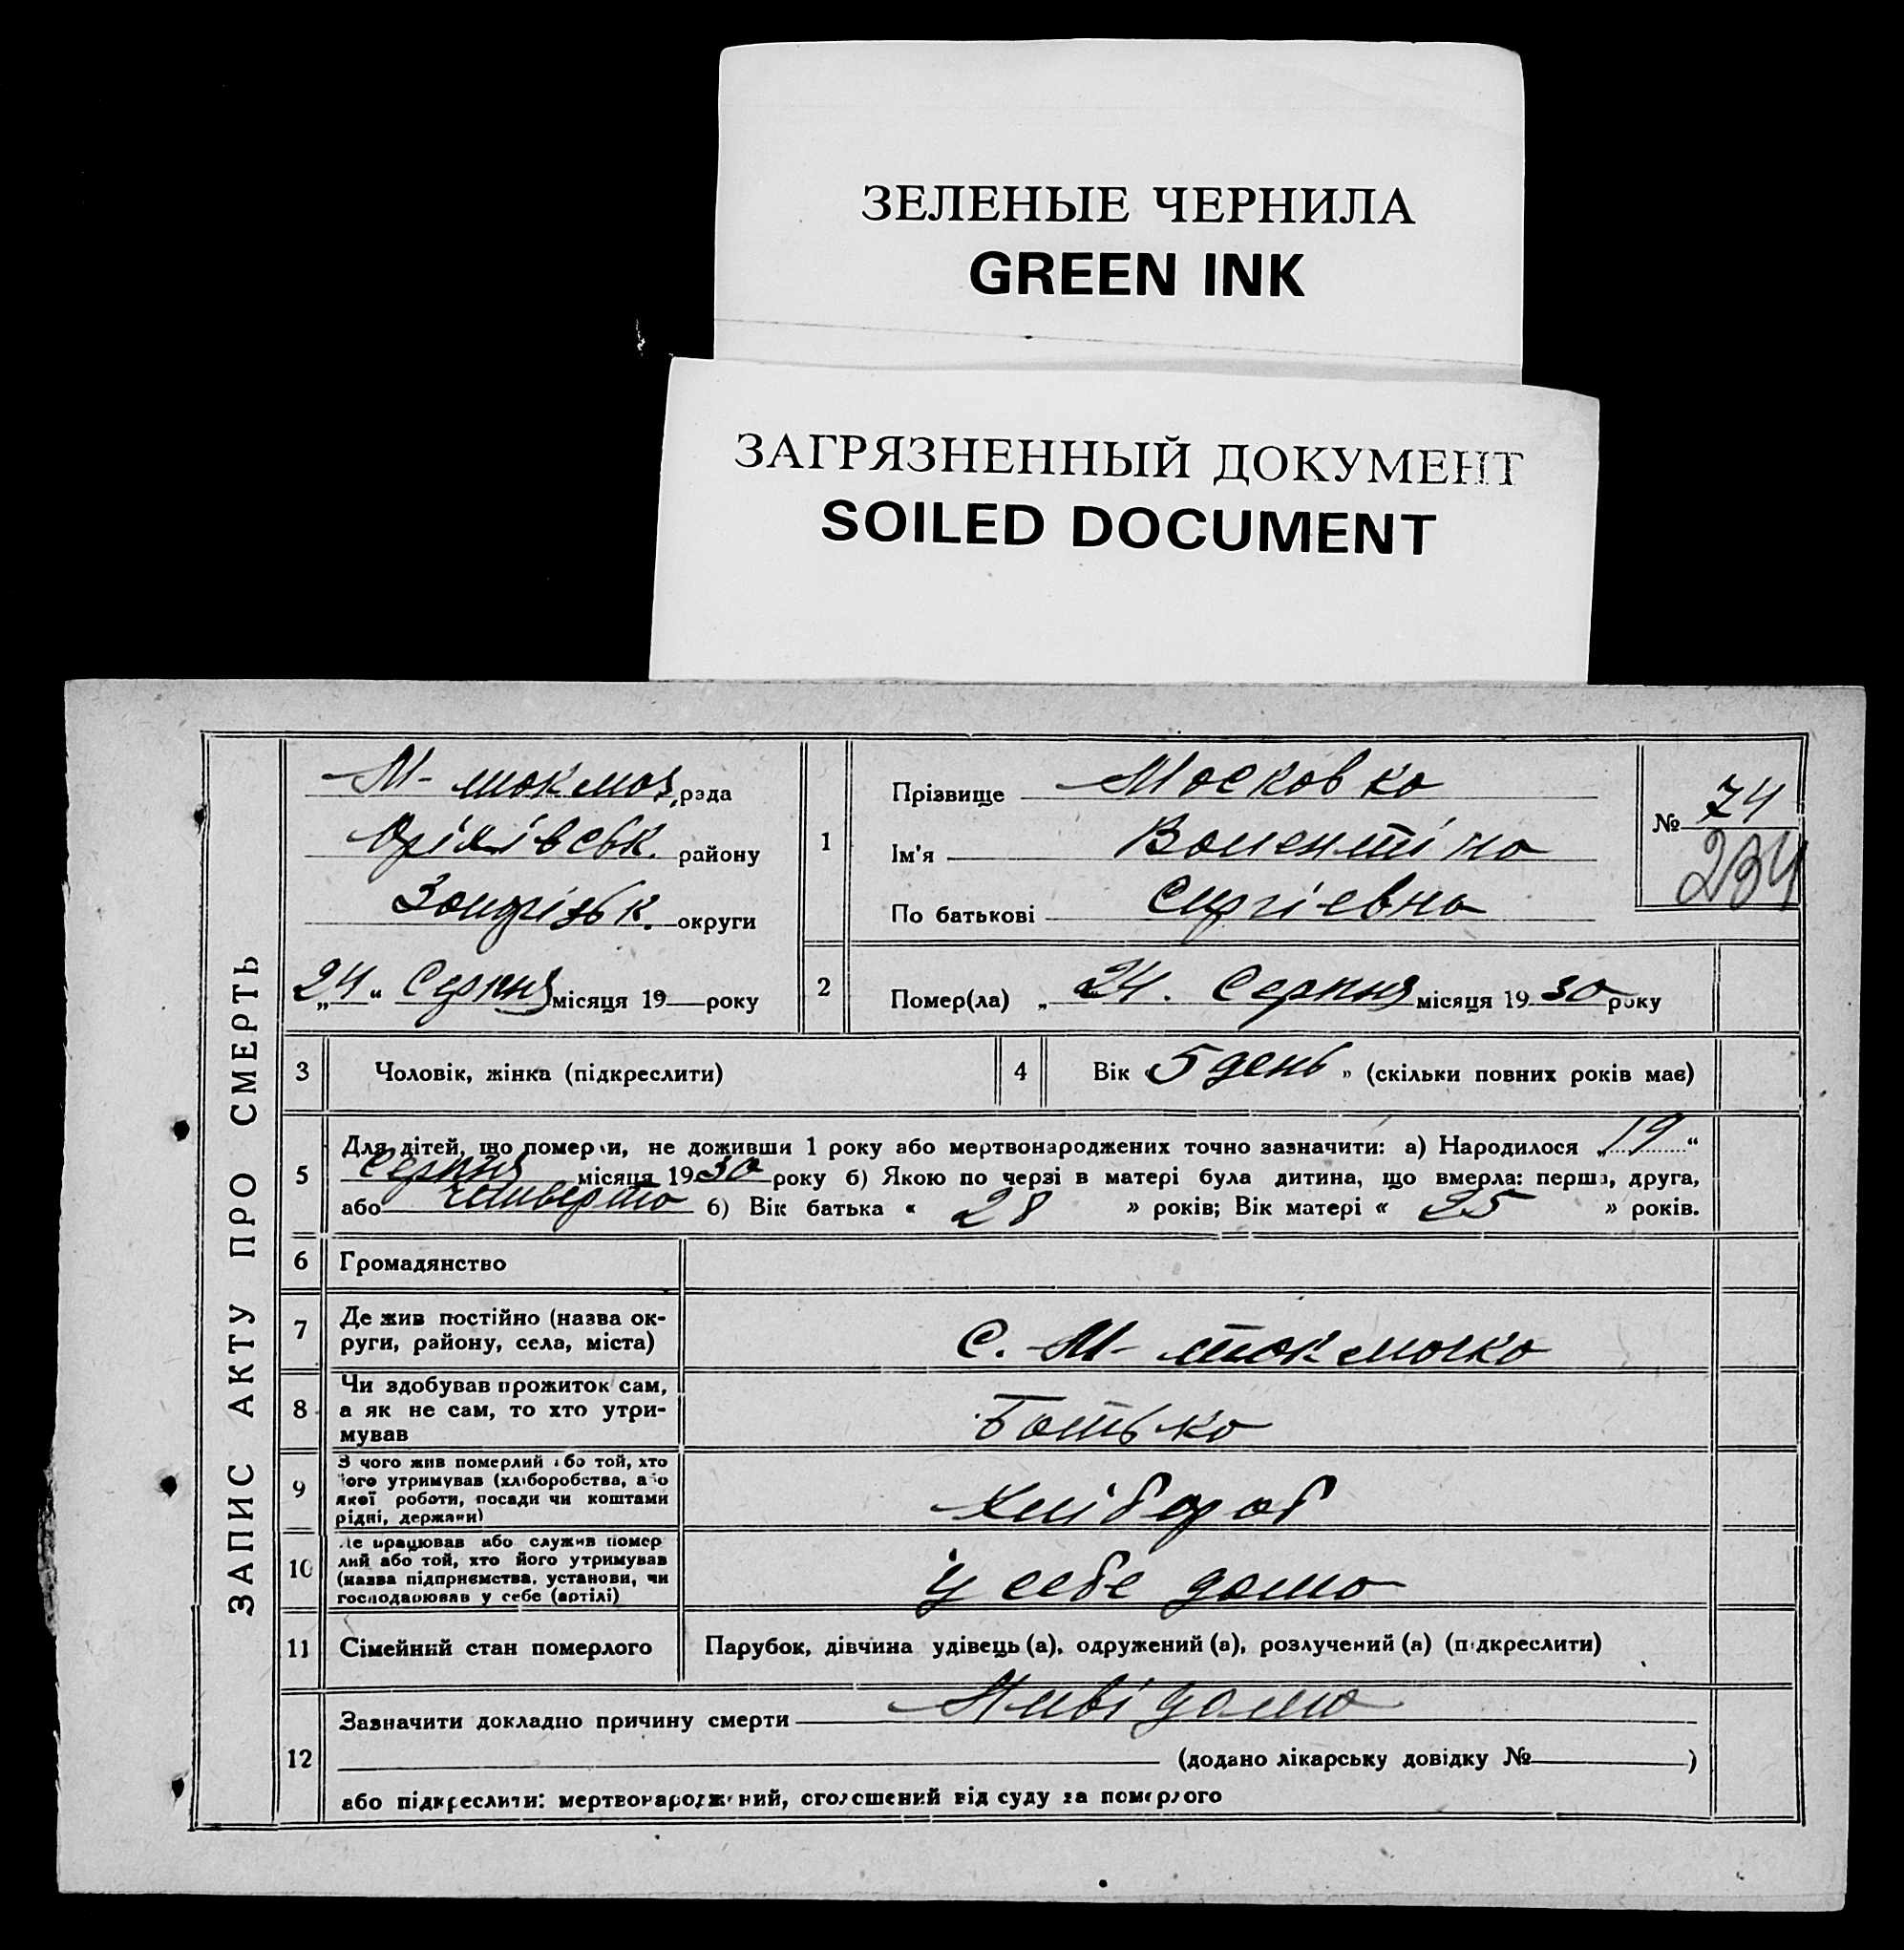 ЗЕЛЕНЫЕ ЧЕРНИЛА
GREEN INK
ЗАГРЯЗНЕННЫЙ ДОКУМЕНТ
SOILED DOCUMENT
ЗАПИС АКТУ ПРО СМЕРТЬ
М-токмач. рада
Оріхівськ. району
округи
„24“ Серпня місяця 19 року
1
Прізвище Московка
Ім'я Валентіна
По батькові Сиргіевна
№ 74
234
2
Помер(ла) „ 24. Серпня місяця 1930 року
3 Чоловік, жінка (підкреслити)
4 Вік „5 день” (скільки повних років має)
5
Для дітей, що померли, не доживши 1 року або мертвонароджених точно зазначити: а) Народилося „19“
Серпня місяця 1930 року б) Якою по черзі в матері була дитина, що вмерла: перша, друга,
або четверта б) Вік батька « 28 » років; Вік матері « 25 » років.
6 Громадянство
7 Де жив постійно (назва ок-
руги, району, села, міста)
С. М-токмачка
8 Чи здобував прожиток сам,
а як не сам, то хто утри-
мував
Батько
9 З чого жив померлий або той, хто
його утримував (хліборобства, або
якої роботи, посади чи коштами
рідні, держави)
Хлібороб
10 Де працював або служив помер
лий або той, хто його утримував
(назва підприємства, установи, чи
господарював у себе (артілі)
у себе дома
11 Сімейний стан померлого
Парубок, дівчина удівець (а), одружений (а), розлучений (а) (підкреслити)
12
Зазначити докладно причину смерти Нивідамо
(додано лікарську довідку № )
або підкреслити: мертвонароджений, оголошений від суду за померлого